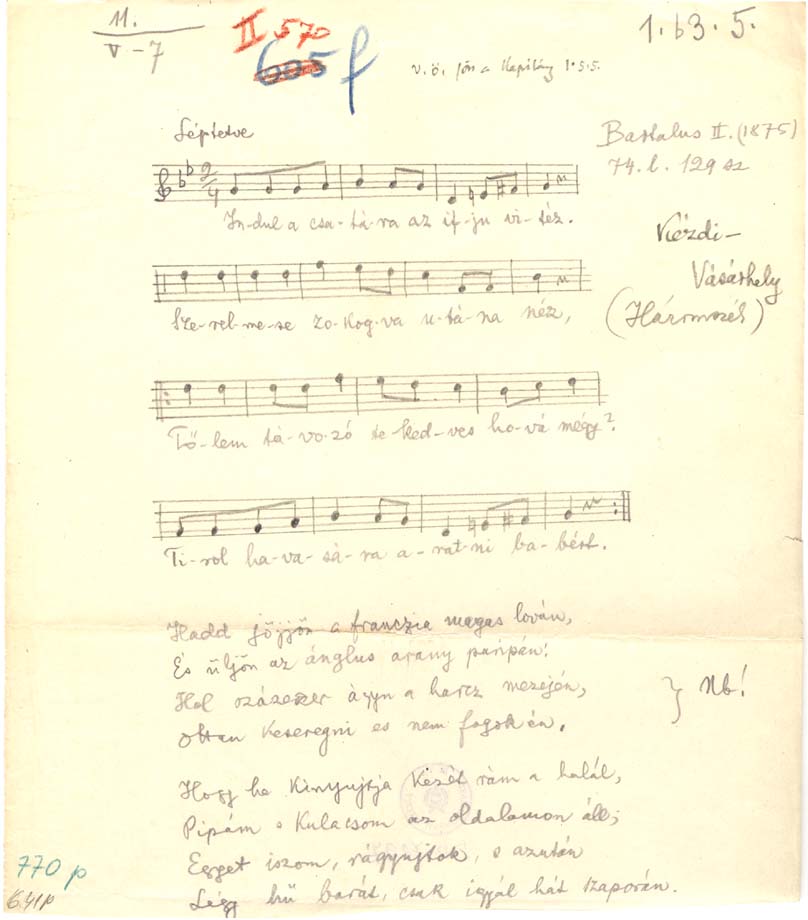 11.
V-7
II 570
605 f
1.63.5.
v.ö. Jön a Kapitány 1.5.5.
Léptetve
Bartalus II. (1875)
74. l. 129 sz
2/4
In-dul a csa-tá-ra az if-ju vi-téz.
Kézdi-
Vásárhely
(Háromszék)
Sze-rel-me-se zo-kog-va u-tá-na néz,
Tő-lem tá-vo-zó te ked-ves ho-vá mégy?
Ti-rol ha-va-sá-ra a-rat-ni ba-bért.
Hadd jőjjön a franczia magas lován,
És üljön az ánglus arany paripán!
Hol százezer ágyu a harcz mezején,
ottan Keseregni es nem fogok én.
} Nb!
Hogy ha Kinyujtja Kezét rám a halál,
Pipám s Kulacsom az oldalamon áll;
Egyet iszom, rágyujtok, s azután
Légy hű barát, csak igyál hát szaporán.
770 p
6.41p